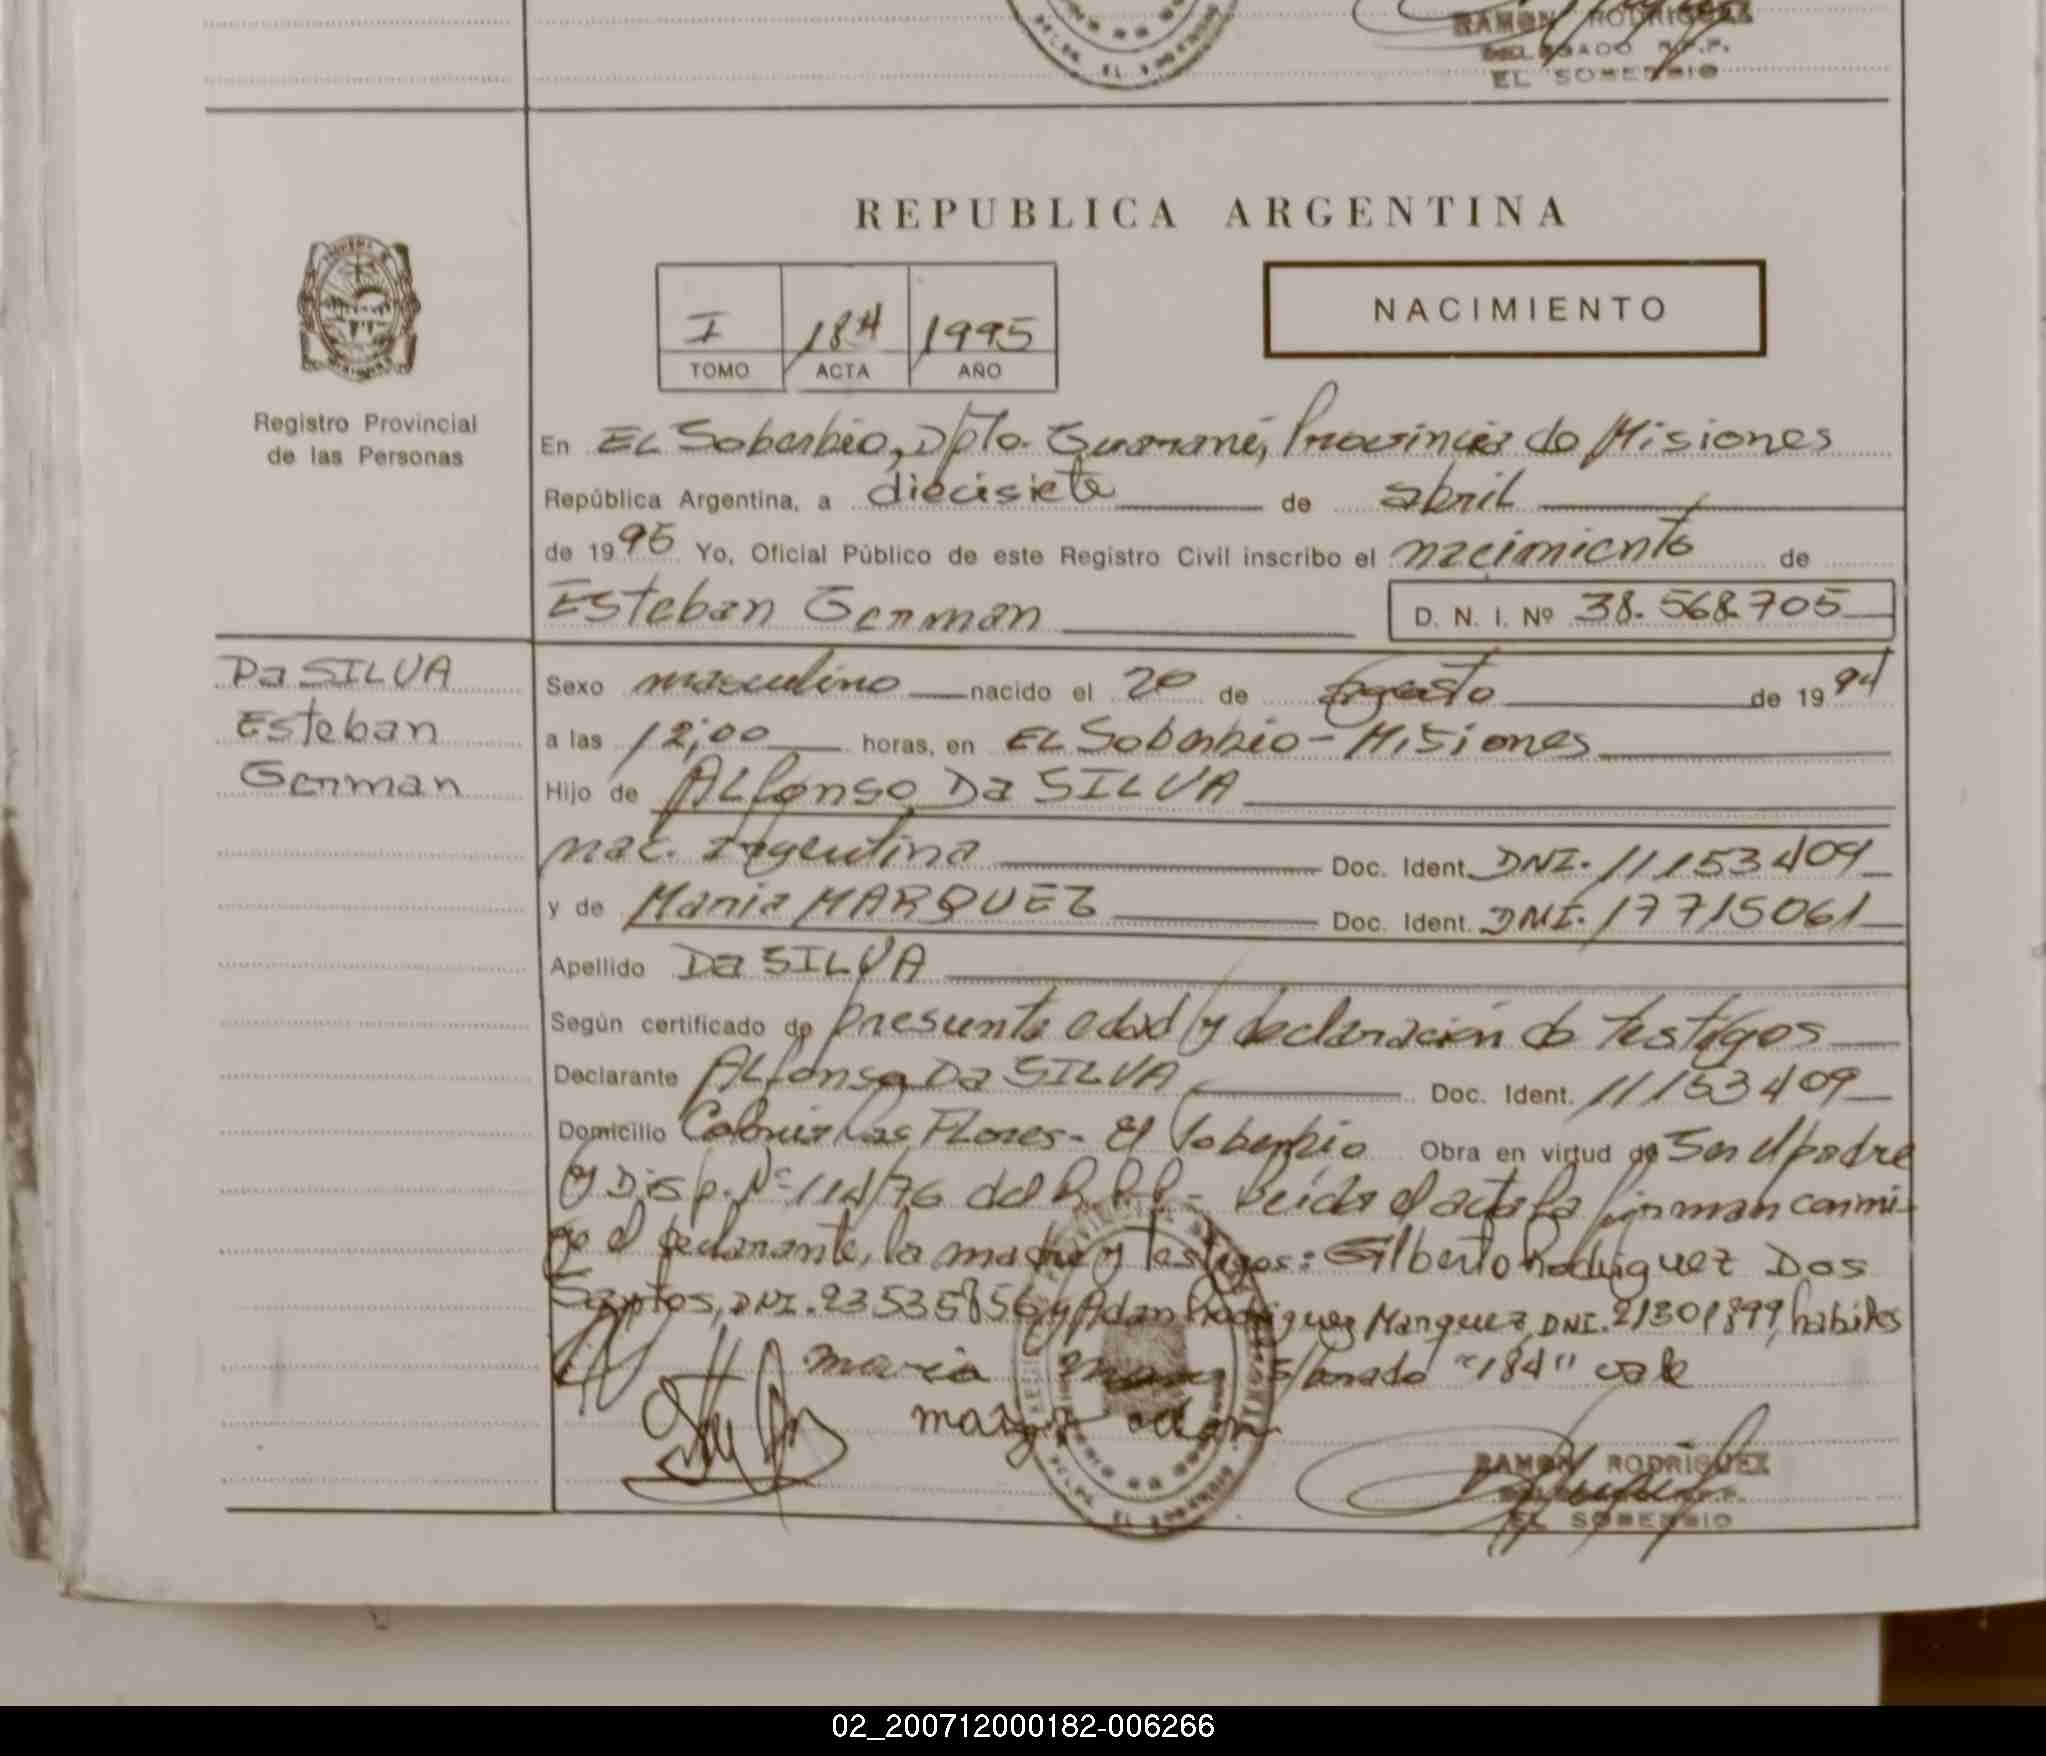 RAMON RODRIGUEZ
DELEGADO R.P.P.
EL SOBERBIO
REPUBLICA ARGENTINA
I 184 1995
TOMO ACTA AÑO
NACIMIENTO
Registro Provincial
de las Personas
En EL Soberbio, Dpto. Guaraní, Provincia de Misiones
República Argentina, a diecisiete de abril
de 1995 Yo, Oficial Público de este Registro Civil inscribo el nacimiento de
Esteban German D. N. I. Nº 38.568.705
Da SILVA
Esteban
German
Sexo masculino nacido el 20 de Agosto de 1994
a las 12;00 horas, en EL Soberbio - Misiones
Hijo de ALfonso Da SILVA
nac. Argentina Doc. Ident. DNI. 11153409
y de Maria MARQUEZ Doc. Ident. DNI. 17715061
Apellido Da SILVA
Según certificado de presunta edad y declaración de testigos
Declarante ALfonso Da SILVA Doc. Ident. 11153409
Domicilio Colonia Las Flores - El Soberbio Obra en virtud de Ser el padre
y Disp. Nº 114/76 del R.P.P. - Leída el acta la firman conmi-
go el declarante, la madre y testigos: Gilberto Rodriguez Dos
Santos, DNI. 23535856 y Adan Rodriguez Marquez, DNI. 21301899, habiles
maria S/borrado "184" vale
adan
RAMON RODRIGUEZ
EL SOBERBIO
02_200712000182-006266